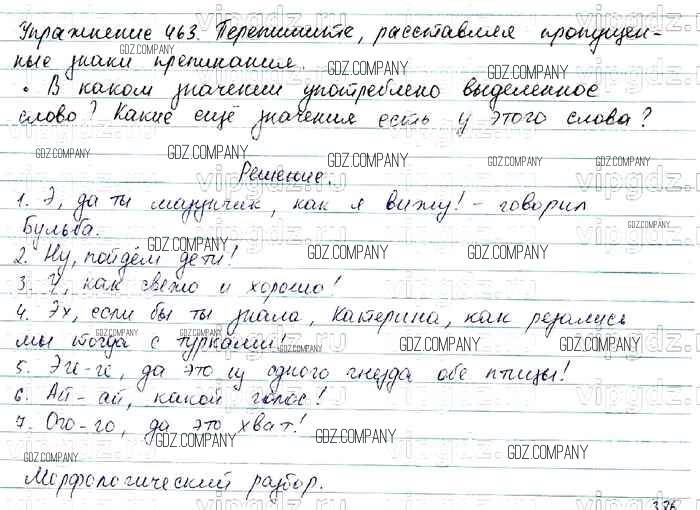 Упражнение 463. Перепишите, расставляя пропущен-
ные знаки препинания.
• В каком значении употреблено выделенное
слово? Какие ещё значения есть у этого слова?
Решение.
1. Э, да ты мазунчик, как я вижу! - говорил
Бульба.
2. Ну, пойдём дети!
3. У, как свежо и хорошо!
4. Эх, если бы ты знала, Катерина, как резались
мы тогда с турками!
5. Эге-ге, да это из одного гнезда обе птицы!
6. Ай-ай, какой голос!
7. Ого-го, да это хват!
Морфологический разбор.
336
GDZ.COMPANY
vipgdz.ru